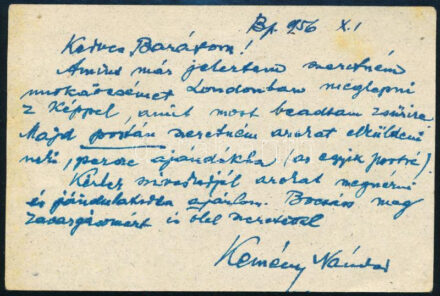 Bp. 956 X.1
Kedves Barátom!
Amint már jeleztem szeretném
Londonban meglepni
2 képpel, amit most beadtam zsürire
Majd postán szeretném azokat elküldeni
neki, persze ajándékba (az egyik portré).
Kérlek szíveskedjél azokat megnézni
és ajánlani. Bocsáss meg
zavarásomért és ölel szeretettel
Kemény Nándor